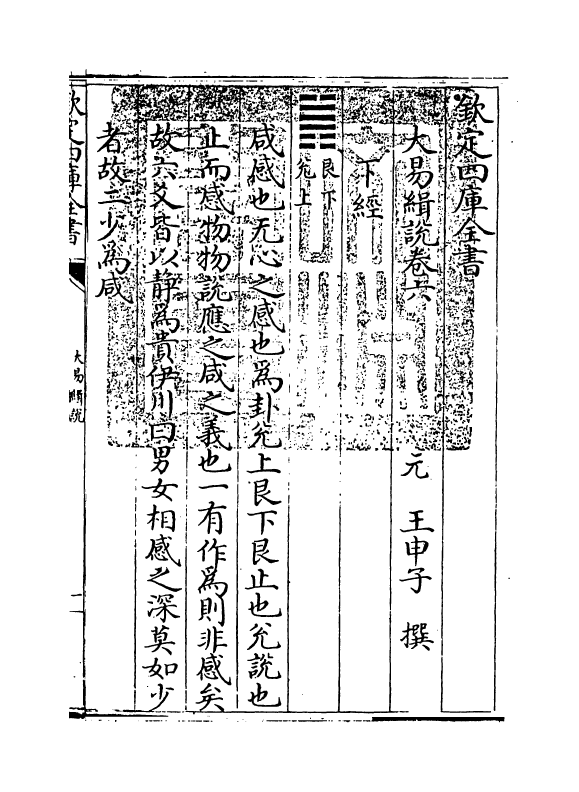 欽定四庫全書
大易緝說卷六
元 王申子 撰
下經
艮下
兌上
咸感也无心之感也為卦兌上艮下艮止也兌說也
止而感物物說應之咸之義也一有作為則非感矣
故六爻皆以靜為貴伊川曰男女相感之深莫如少
者故二少為咸
欽定四庫全書
大易緝說
一